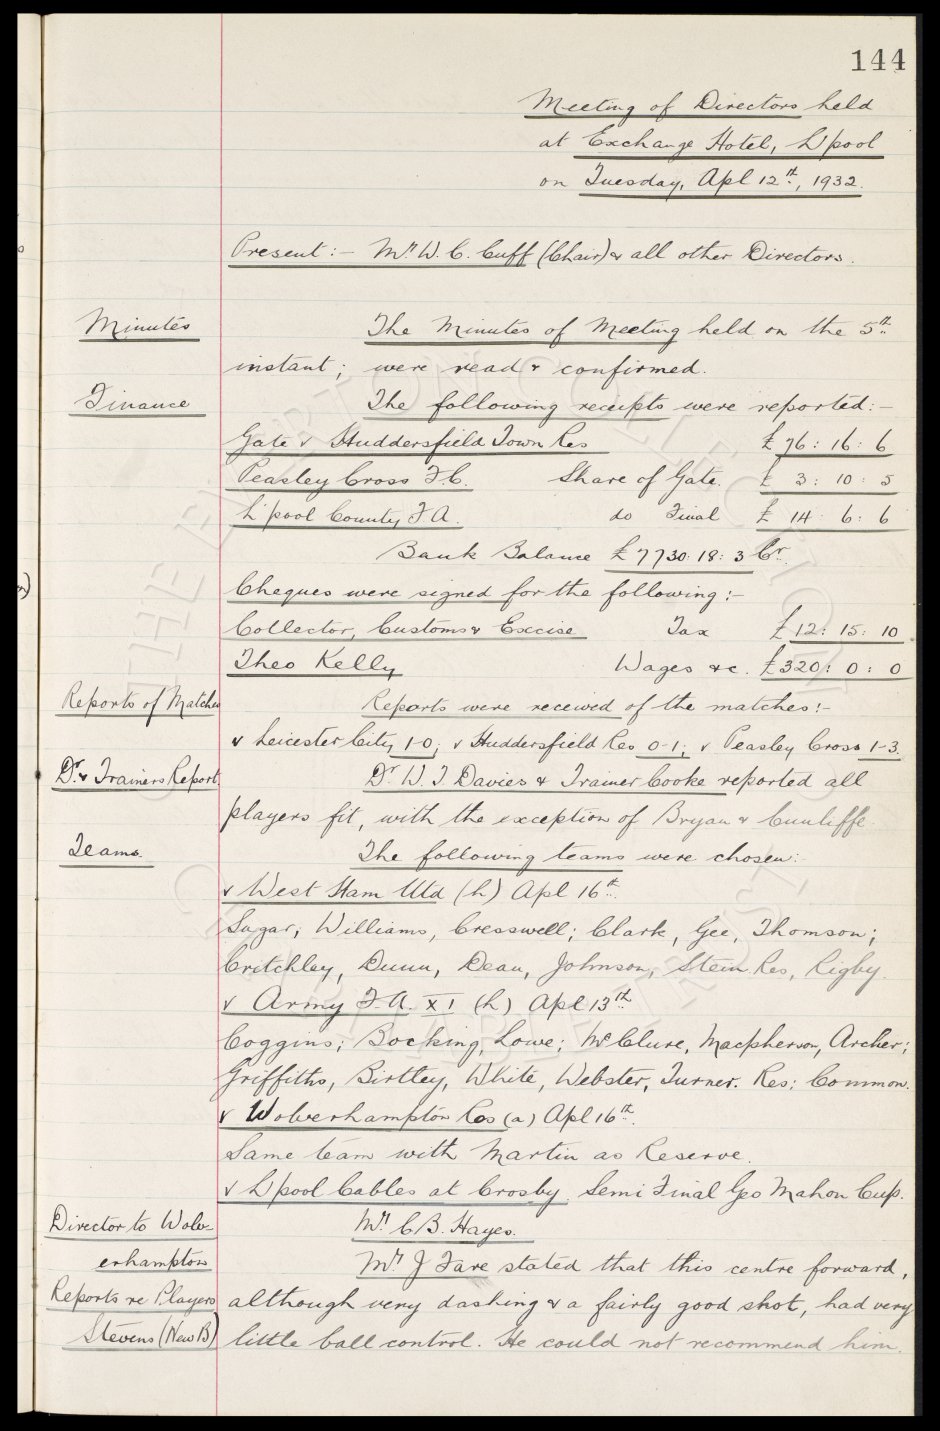 144
Meeting of Directors held
at Exchange Hotel, L'pool
on Tuesday, Apl 12th, 1932.
Present :- Mr W. C. Cuff (Chair) & all other Directors.
Minutes The Minutes of Meeting held on the 5th
instant; were read & confirmed.
Finance The following receipts were reported:-
Gate v Huddersfield Town Res £76: 16: 6
Peasley Cross F.C. Share of Gate. £ 3: 10: 5
L'pool County F.A. do Final £ 14 6: 6
Bank Balance £7730: 18: 3 Cr.
Cheques were signed for the following:-
Collector, Customs & Excise Tax £12: 15: 10
Theo Kelly Wages &c. £320: 0: 0
Reports of Matches Reports were received of the matches:-
v Leicester City 1-0; v Huddersfield Res 0-1; v Peasley Cross 1-3.
Dr. & Trainers Report. Dr. W. J. Davies & Trainer Cooke reported all
players fit, with the exception of Bryan & Cunliffe.
Teams. The following teams were chosen:
v West Ham Utd (h) Apl 16th.
Sagar; Williams, Cresswell; Clark, Gee, Thomson;
Critchley, Dunn, Dean, Johnson, Stein. Res, Rigby.
v Army F.A. XI (h) Apl 13th
Coggins; Bocking, Lowe; McClure, Macpherson, Archer;
Griffiths, Birtley, White, Webster, Turner. Res: Common.
v Wolverhampton Res (a) Apl 16th.
Same team with Martin as Reserve.
v L'pool Cables at Crosby. Semi Final Geo Mahon Cup.
Director to Wolv- Mr. C.B. Hayes.
erhampton Mr. J Fare stated that this centre forward,
Reports re Players although very dashing & a fairly good shot, had very
Stevens (New B) little ball control. He could not recommend him.
THE EVERTON COLLECTION
CHARITABLE TRUST